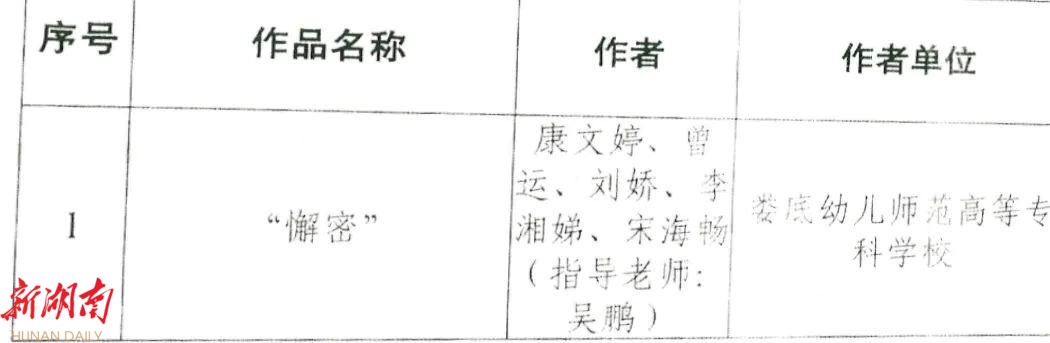 序号
作品名称
作者
作者单位
1
“懈密”
康文婷、曾
运、刘娇、李
湘娣、宋海畅
(指导老师:
吴鹏)
娄底幼儿师范高等专
科学校
新湖南
HUNAN DAILY